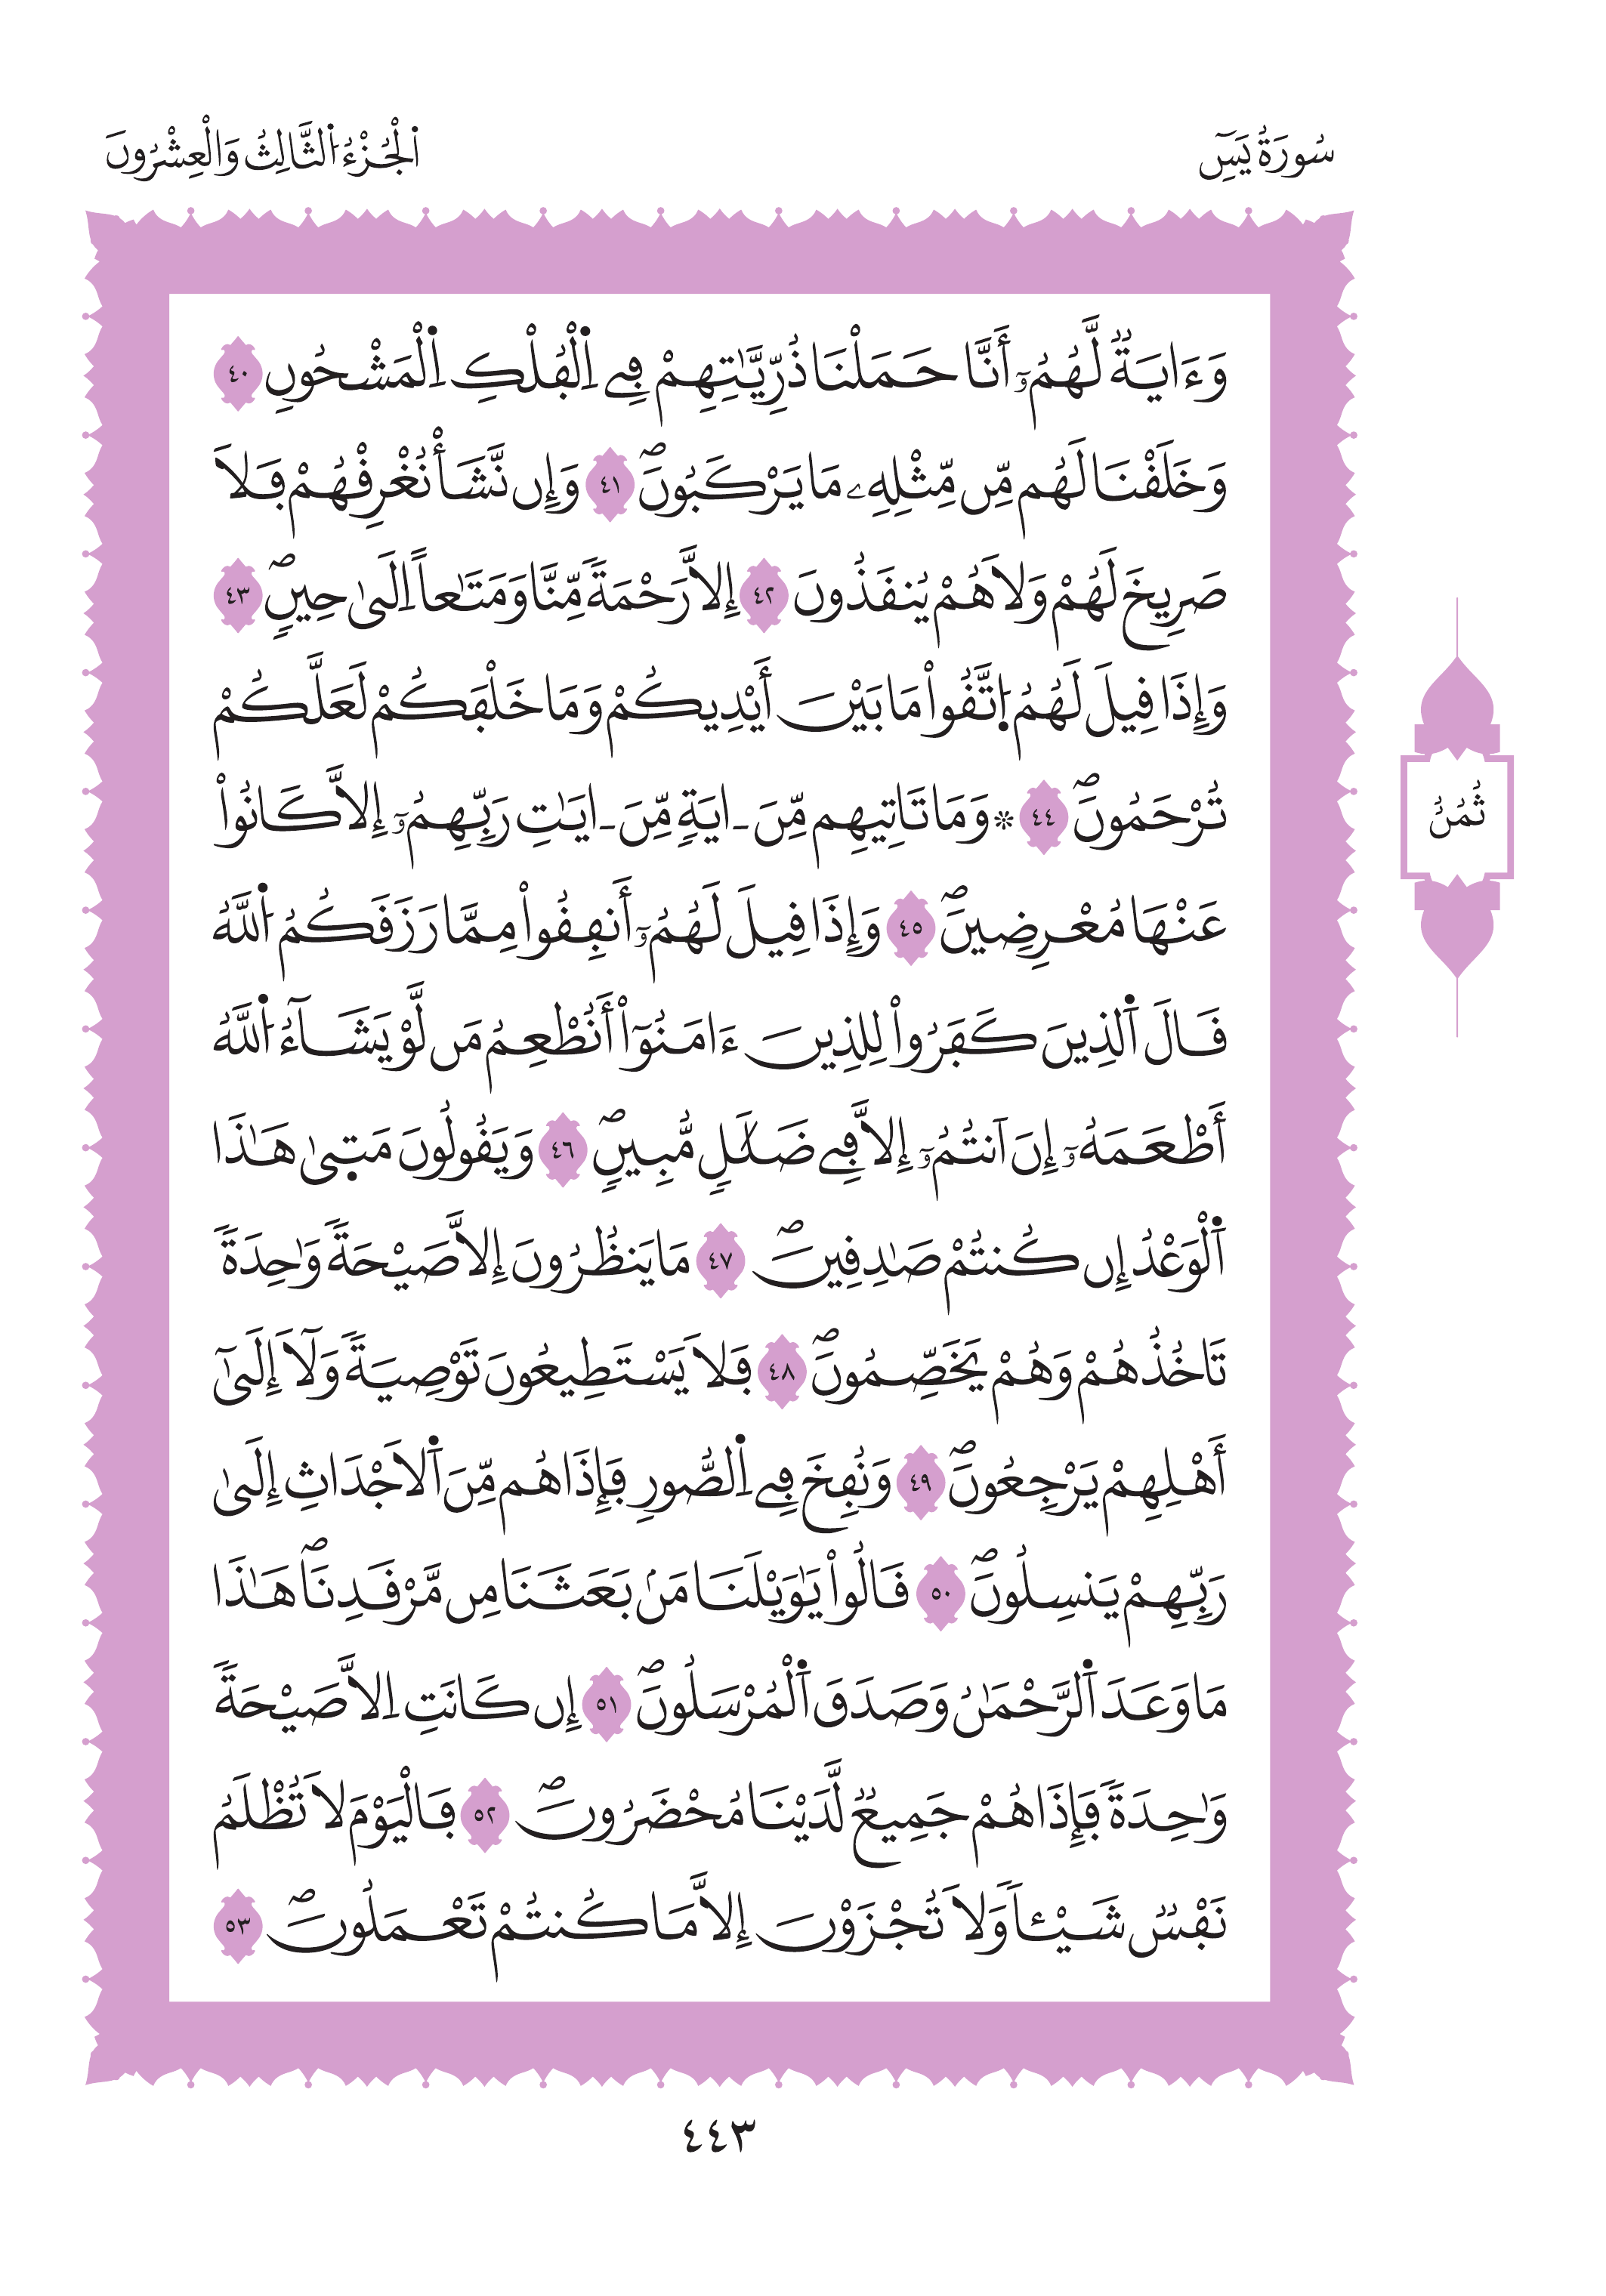 سُورَةُ يَسِٓ
اَ۬لْجُزْءُ اُ۬لثَّالِثُ وَالْعِشْرُونَ
وَءَايَةٞ لَّهُمُۥٓ أَنَّا حَمَلْنَا ذُرِّيَّٰتِهِمْ فِے اِ۬لْفُلْكِ اِ۬لْمَشْحُونِ ٤٠
وَخَلَقْنَا لَهُم مِّن مِّثْلِهِۦ مَا يَرْكَبُونَۖ ٤١ وَإِن نَّشَأْ نُغْرِقْهُمْ فَلَا
صَرِيخَ لَهُمْ وَلَا هُمْ يُنقَذُونَ ٤٢ إِلَّا رَحْمَةٗ مِّنَّا وَمَتَٰعاً اِلَىٰ حِينٖۖ ٤٣
وَإِذَا قِيلَ لَهُمُ اُ۪تَّقُواْ مَا بَيْنَ أَيْدِيكُمْ وَمَا خَلْفَكُمْ لَعَلَّكُمْ
تُرْحَمُونَۖ ٤٤ ۞ وَمَا تَاتِيهِم مِّنَ اٰيَةٖ مِّنَ اٰيَٰتِ رَبِّهِمُۥٓ إِلَّا كَانُواْ
عَنْهَا مُعْرِضِينَۖ ٤٥ وَإِذَا قِيلَ لَهُمُۥٓ أَنفِقُواْ مِمَّا رَزَقَكُمُ اُ۬للَّهُ
قَالَ اَ۬لذِينَ كَفَرُواْ لِلذِينَ ءَامَنُوٓاْ أَنُطْعِمُ مَن لَّوْ يَشَآءُ اُ۬للَّهُ
أَطْعَمَهُۥٓ إِنَ اَنتُمُۥٓ إِلَّا فِے ضَلَٰلٖ مُّبِينٖۖ ٤٦ وَيَقُولُونَ مَتىٰ هَٰذَا
اَ۬لْوَعْدُ إِن كُنتُمْ صَٰدِقِينَۖ ٤٧ مَا يَنظُرُونَ إِلَّا صَيْحَةٗ وَٰحِدَةٗ
تَاخُذُهُمْ وَهُمْ يَخَصِّمُونَۖ ٤٨ فَلَا يَسْتَطِيعُونَ تَوْصِيَةٗ وَلَآ إِلَىٰٓ
أَهْلِهِمْ يَرْجِعُونَۖ ٤٩ وَنُفِخَ فِے اِ۬لصُّورِ فَإِذَا هُم مِّنَ اَ۬لَاجْدَاثِ إِلَىٰ
رَبِّهِمْ يَنسِلُونَۖ ٥٠ قَالُواْ يَٰوَيْلَنَا مَنۢ بَعَثَنَا مِن مَّرْقَدِنَاۖ هَٰذَا
مَا وَعَدَ اَ۬لرَّحْمَٰنُ وَصَدَقَ اَ۬لْمُرْسَلُونَۖ ٥١ إِن كَانَتِ اِلَّا صَيْحَةٗ
وَٰحِدَةٗ فَإِذَا هُمْ جَمِيعٞ لَّدَيْنَا مُحْضَرُونَۖ ٥٢ فَالْيَوْمَ لَا تُظْلَمُ
نَفْسٞ شَيْـٔاٗ وَلَا تُجْزَوْنَ إِلَّا مَا كُنتُمْ تَعْمَلُونَۖ ٥٣
ثُمُنُ
٤٤٣